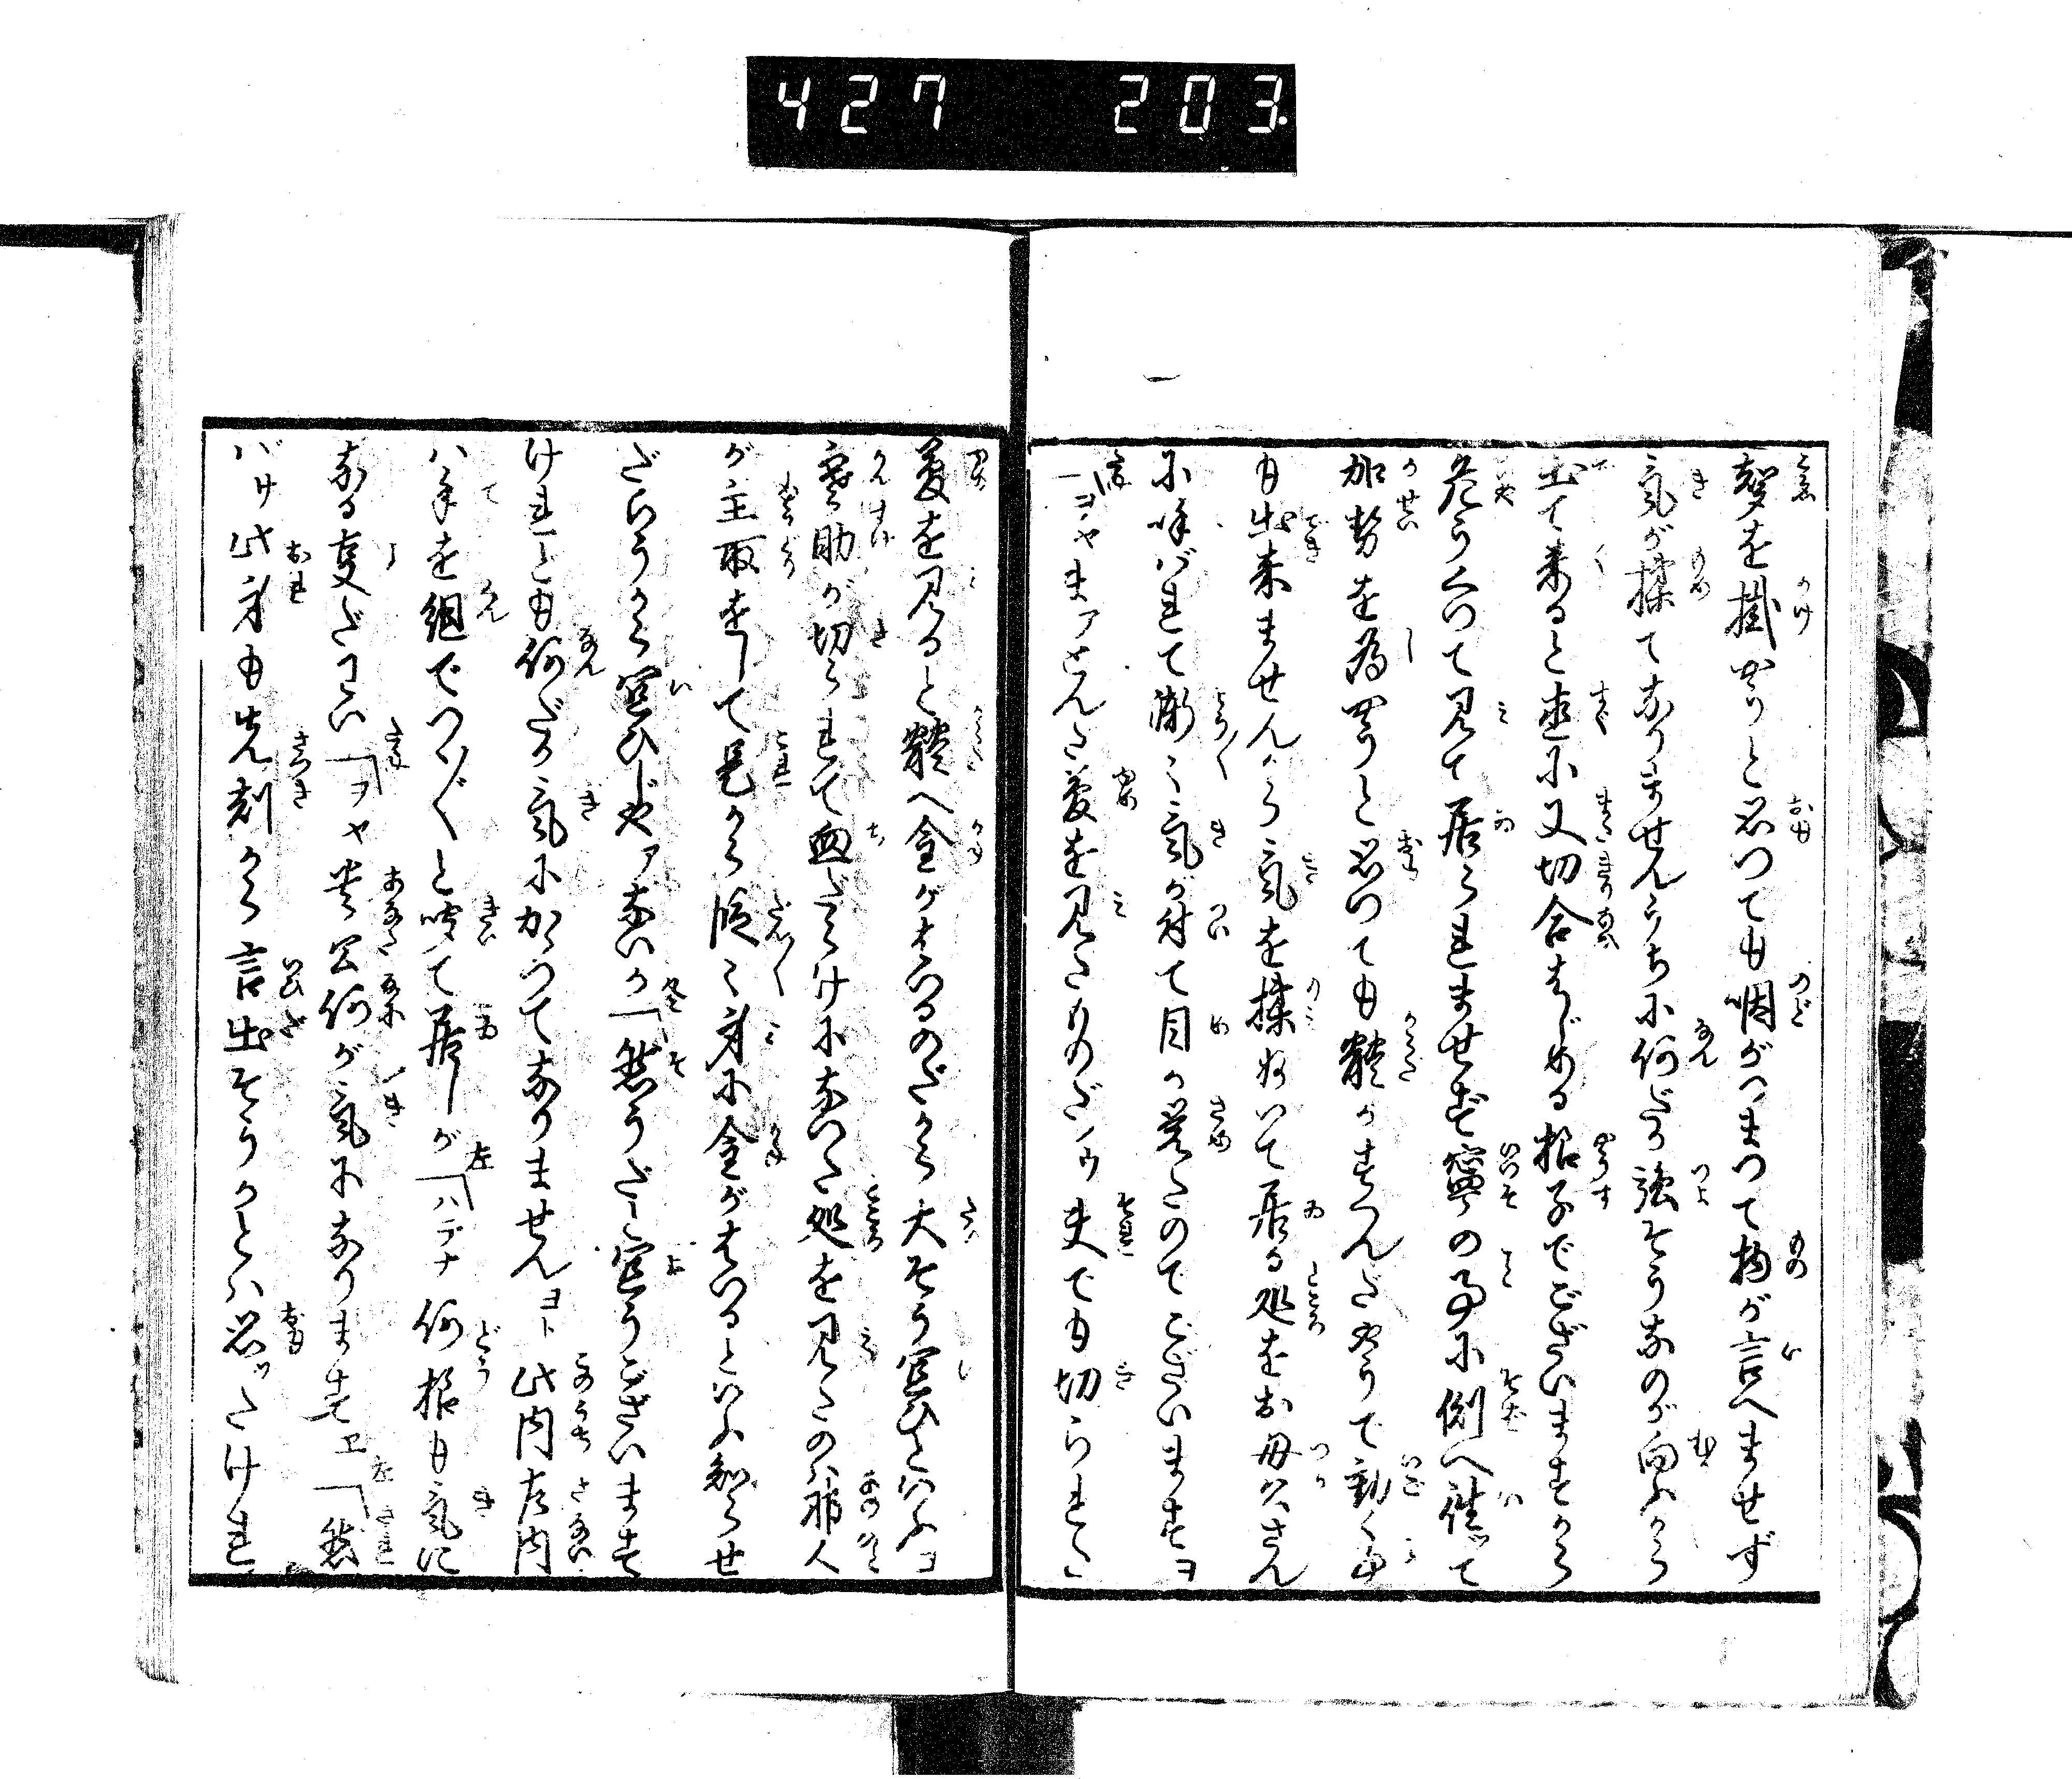 427 203.
声を掛やうと思つても咽がつまつて物が言へませず
気が揉てなりませんうちに何だか強さうなのが向ふから
出て来ると直に又切合をはじめる様子でございますから
危うくつて見て居られませず寧の事に側へ往て
加勢を為やうと思つても体がすくんだやうで動く事
も出来ませんから気を揉ぬいて居る処をお母さん
に呼ばれて漸々気が付て目が覚たのでございますヨ
ヲヤまアとんだ夢を見たものだノウ夫でも切られた
夢を見ると体へ金がはいるのだから大そう宜ひといふヨ
助が切られて血だらけになつた処を見たのは那人
が主取をして是から段々身に金がはいるといふ知らせ
だらうから宜ひじやアないか「然うだと宜うございます
けれども何だか気にかかつてなりませんヨト此内左内
ハ手を組でつくづくと聞て居しが「ハテナ何様も気に
なる夢だわい「ヲヤ貴公何が気になりますヱ「然
バサ此身も先刻から言出さうかとは思ツたけれど